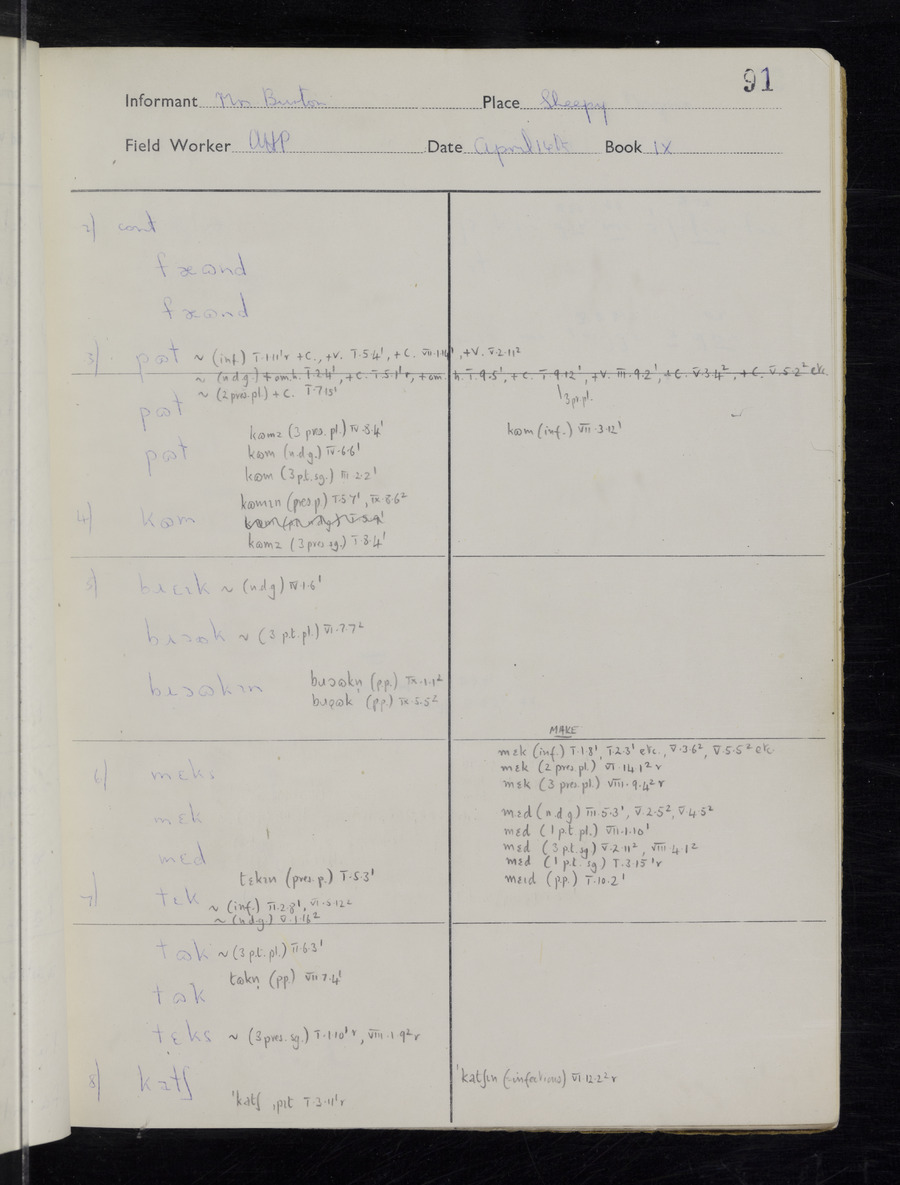 91
Informant Mrs Burton Place Sheepy
Field Worker AHP Date April 14th Book IX
2) cont
fɤɷnd
fɤɷnd
3) pɷt ~ (inf.) I.1.11¹r +C., +V. I.5.4¹, +C. VII.1.14¹, +V. V.2.11²
~ (n.d.g.) + om.h. I.2.4¹, +C. I.5.1¹r, +om.h. I.9.5¹, +C. I.9.12¹, +V. III.9.2¹, +C. V.3.4², +C. V.5.2² etc.
~ (2 pres.pl.) + C. I.7.15¹
3 pr.pl.
pɷt
pɷt
kɷmz (3 pres. pl.) IV.8.4¹
kɷm (inf.) VII.3.12¹
kɷm (n.d.g.) IV.6.6¹
kɷm (3 p.t. sg.) III.2.2¹
kɷmɪn (pres.p.) I.5.7¹, IX.8.6²
4) kɷm
kɷmz (3 pres. sg.) I.8.4¹
5) bɹɛɪk ~ (n.d.g) IV.1.6¹
bɹɔɷk ~ (3 p.t. pl.) VI.7.7²
bɹɔɷkɪn
bɹɔɷkn̩ (pp.) IX.1.1²
(pp.) IX.5.5²
MAKE
mɛk (inf.) I.1.8¹, I.2.3¹ etc., V.3.6², V.5.5² etc.
6) mɛks
mɛk (2 pres. pl.) VI.14.1² r
mɛk (3 pres. pl.) VIII.9.4² r
mɛk
mɛd (n.d.g) III.5.3¹, V.2.5², V.4.5²
mɛd (1 p.t. pl.) VII.1.10¹
mɛd
mɛd (3 p.t. sg) V.2.11², VIII.4.1²
mɛd (1 p.t. sg) I.3.15¹r
mɛɪd (pp.) I.10.2¹
tɛkɪn (pres. p.) I.5.3¹
7) tɛk
~ (inf.) II.2.8¹, VI.5.12²
~ (n.d.g.) V.1.16²
tɷk ~ (3 p.t. pl.) II.6.3¹
tɷkn̩ (pp.) VII.7.4¹
tɷk
tɛks ~ (3 pres. sg.) I.1.10¹ r, VIII.1.9² r
8) katʃ
ˈkatʃɪn (infectious) VI.12.2² r
ˈkatʃ ˌpɪt I.3.11¹ r